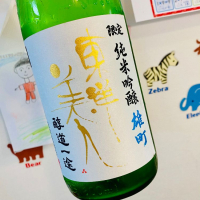 限定
純米吟醸
雄町
東洋美人
醇道一途
Zebra
Bear